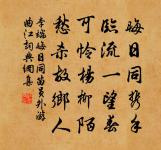 晦日同攜手
臨流一望春
可憐楊柳陌
愁殺故鄉人
李端晦日同苗員外游
曲江詞典網集